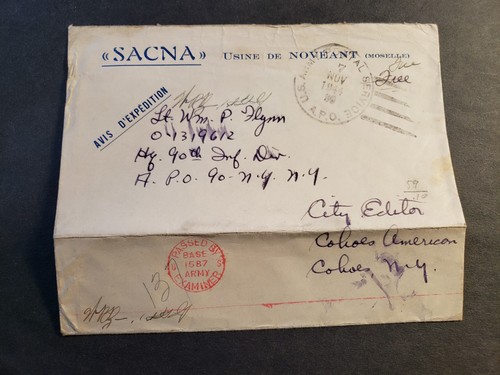 «SACNA» USINE DE NOVÉANT (MOSELLE)
AVIS D'EXPÉDITION
U.S. ARMY POSTAL SERVICE
A.P.O.
7
NOV
Free
Lt. Wm. P. Flynn
O-1319612
Hq. 90th Inf. Div.
A. P. O. 90 - N.Y. N.Y.
City Editor
Cohoes American
Cohoes N.Y.
PASSED BY
BASE
1567
ARMY
EXAMINER